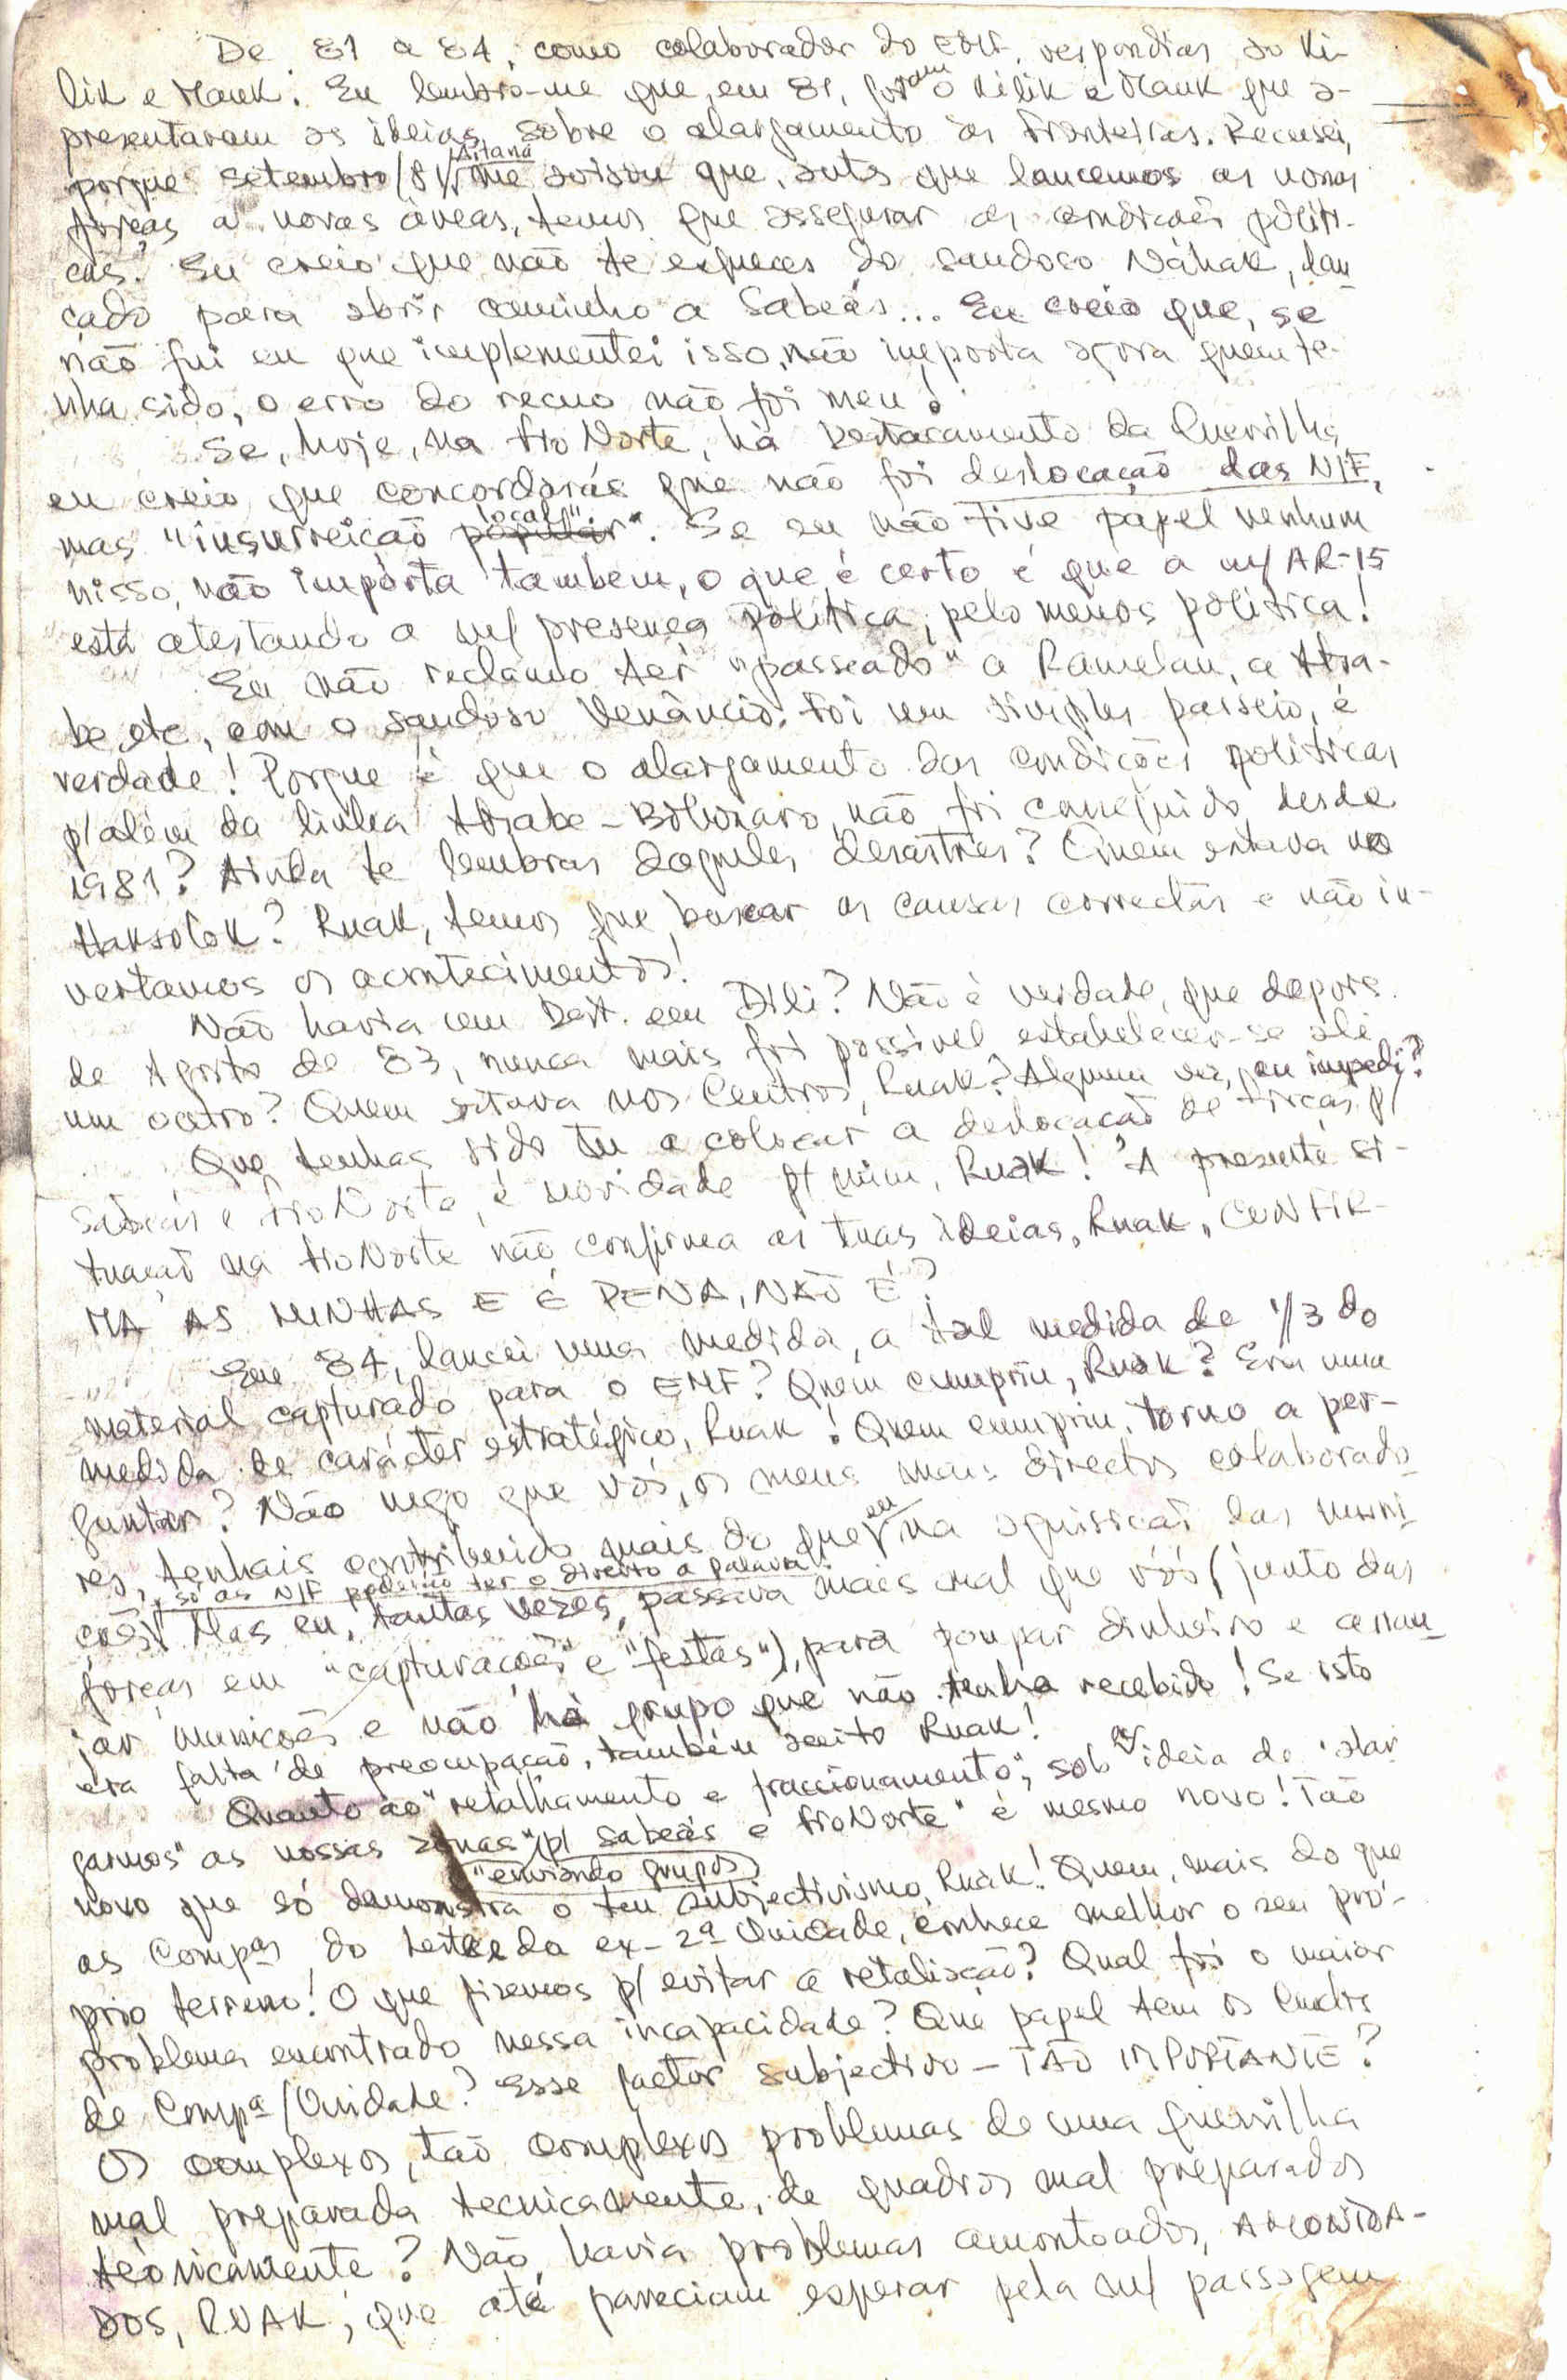 De 81 a 84, como colaborador do EMF, respondias ao Ki-
lik e Mauk. Eu lembro-me que, em 81, foram o Kilik e Mauk que a-
presentaram as ideias sobre o alargamento às fronteiras. Recusei,
porque setembro/81, Aitana me avisou que, antes que lancemos as nossas
forças a novas áreas, temos que assegurar as condições políti-
cas? Eu creio que não te esqueces do saudoso Náhak, lan-
çado para abrir caminho a Sabeás... Eu creio que, se
não fui eu que implementei isso, não importa agora quem te-
nha sido, o erro do recuo não foi meu!
Se, hoje, na fro Norte, há Destacamento da Guerrilha,
eu creio que concordarás que não foi deslocação das N/F,
mas "insurreição local". Se eu não tive papel nenhum
nisso, não importa também, o que é certo é que a m/ AR-15
está atestando a m/ presença política, pelo menos política!
Eu não reclamo ter "passeado" a Ramelau, a Atsa-
be etc, com o saudoso Venâncio. Foi um simples passeio, é
verdade! Porque é que o alargamento das condições políticas
p/além da linha Atsabe-Bobonaro não foi conseguido, desde
1981? Ainda te lembras daqueles desastres? Quem estava no
Haksolok? Ruak, temos que buscar as causas correctas e não in-
vertamos os acontecimentos!
Não havia um Dest. em Dili? Não é verdade, que depois
de Agosto de 83, nunca mais foi possível estabelecer-se ali
um outro? Quem estava nos Centros, Ruak? Alguma vez, eu impedi?
Que tenhas sido tu a colocar a deslocação de forças p/
Sabeás e fro Norte, é novidade p/ mim, Ruak! A presente si-
tuação na fro Norte não confirma as tuas ideias, Ruak, CONFIR-
MA AS MINHAS E É PENA, NÃO É?
Em 84, lancei uma medida, a tal medida de 1/3 do
material capturado para o EMF? Quem cumpriu, Ruak? Era uma
medida de carácter estratégico, Ruak! Quem cumpriu, torno a per-
guntar? Não nego que vós, os meus mais directos colaborado-
res, tenhais contribuido mais do que eu na aquisição das muni-
ções, só as N/F poderão ter o direito a palavra! Mas eu, tantas vezes, passava mais mal que vós (junto das
forças em "capturações" e "festas"), para poupar dinheiro e arran-
jar munições e não há grupo que não tenha recebido! Se isto
era falta de preocupação, também aceito Ruak!
Quanto ao "retalhamento e fraccionamento", sob a ideia de "alar
garmos" as nossas zonas "enviando grupos" p/ Sabeás e fro Norte" é mesmo novo! Tão
novo que só demonstra o teu subjectivismo, Ruak! Quem, mais do que
as Compªs do Leste e da ex-2ª Unidade, conhece melhor o seu pró-
prio terreno! O que fizemos p/ evitar a retaliação? Qual foi o maior
problema encontrado nessa incapacidade? Que papel tem os Cmdts
de Compª/Unidade? Esse factor subjectivo - TÃO IMPORTANTE?
Os complexos, tão complexos problemas de uma guerrilha
mal preparada tecnicamente, de quadros mal preparados
teoricamente? Não havia problemas amontoados, AMONTOA-
DOS, RUAK, que até pareciam esperar pela m/ passagem